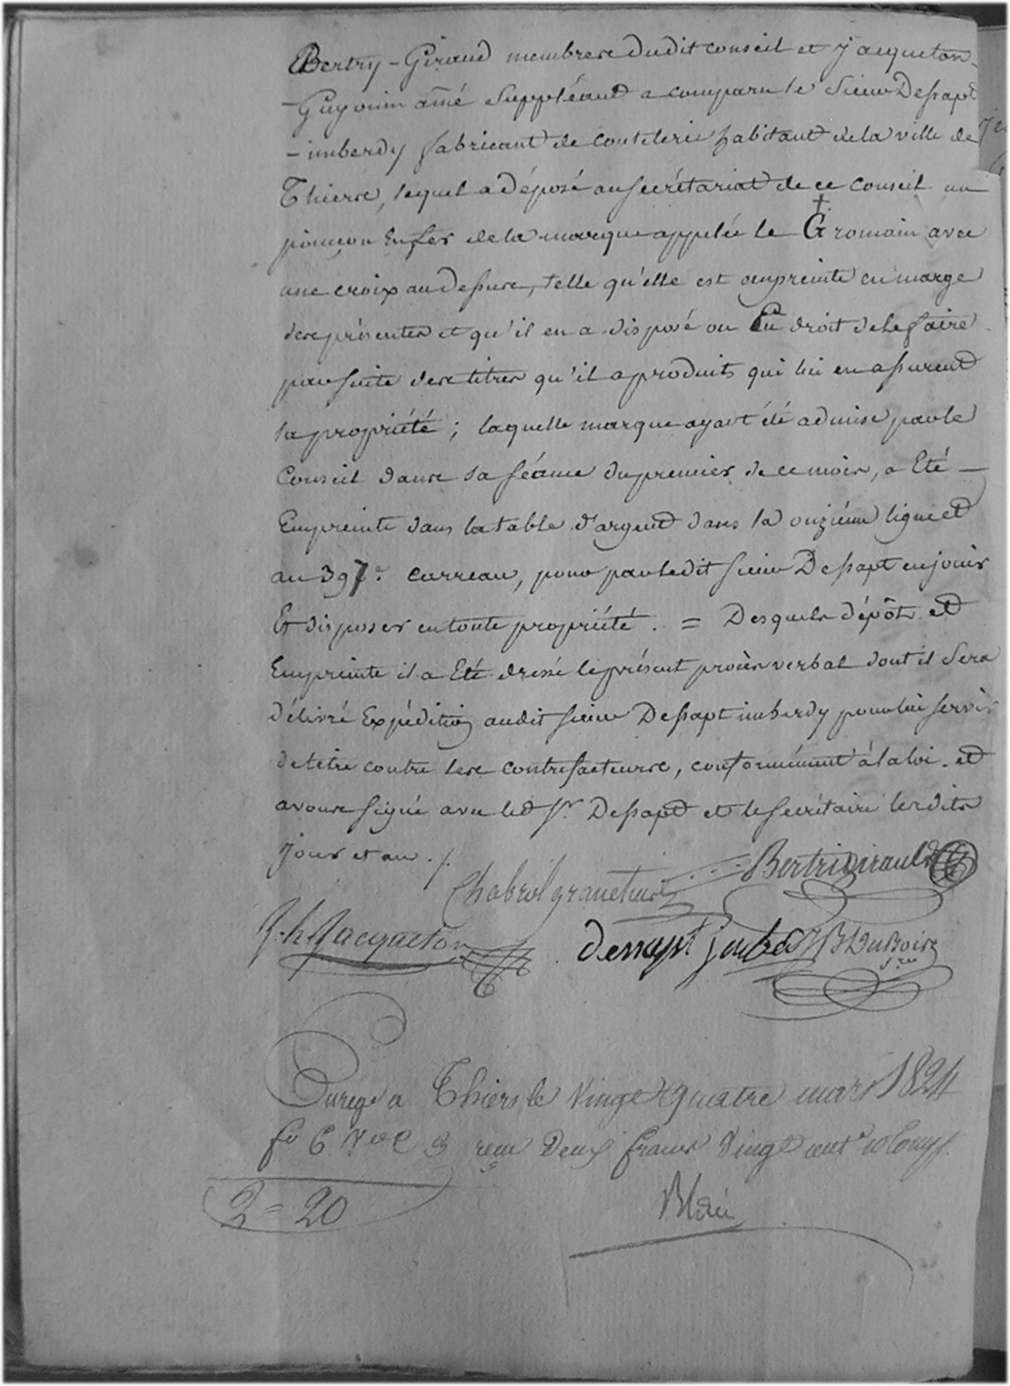 Bertry-Giraud membres dudit conseil et Jacqueton
-Guyonin ainé Suppléant a comparu le Sieur Dessapt
-imberdy fabricant de coutelerie habitant de la ville de
Thiers, lequel a déposé au secrétariat de ce conseil un
poinçon en fer de la marque appelée le G romain avec
une croix au dessus, telle qu'elle est empreinte en marge
des présentes et qu'il en a disposé ou Eu droit de le faire
par suite des titres qu'il a produits qui lui en assurent
la propriété ; laquelle marque ayant été admise par le
Conseil dans sa séance du premier de ce mois, a Eté
Empreinte dans la table d'argent dans la onzième ligne et
au 397e. carreau, pour par ledit sieur Dessapt en jouir
Et disposer en toute propriété. = Desquels dépôt et
Empreinte il a Eté dressé le présent procès verbal dont il sera
délivré Expédition audit sieur Dessapt imberdy pour lui servir
de titre contre les contrefacteurs, conformément à la loi. et
avons signé avec led Sr. Dessapt et le secrétaire lesdits
jour et an ./.
Chabrol Bertry Giraud
J. h. Jacqueton dessapt JB Dubois
Sre
à Thiers le Vingt quatre mars 1824
fo 6 Vo C 3 reçu Deux francs Vingt centes
2 = 20